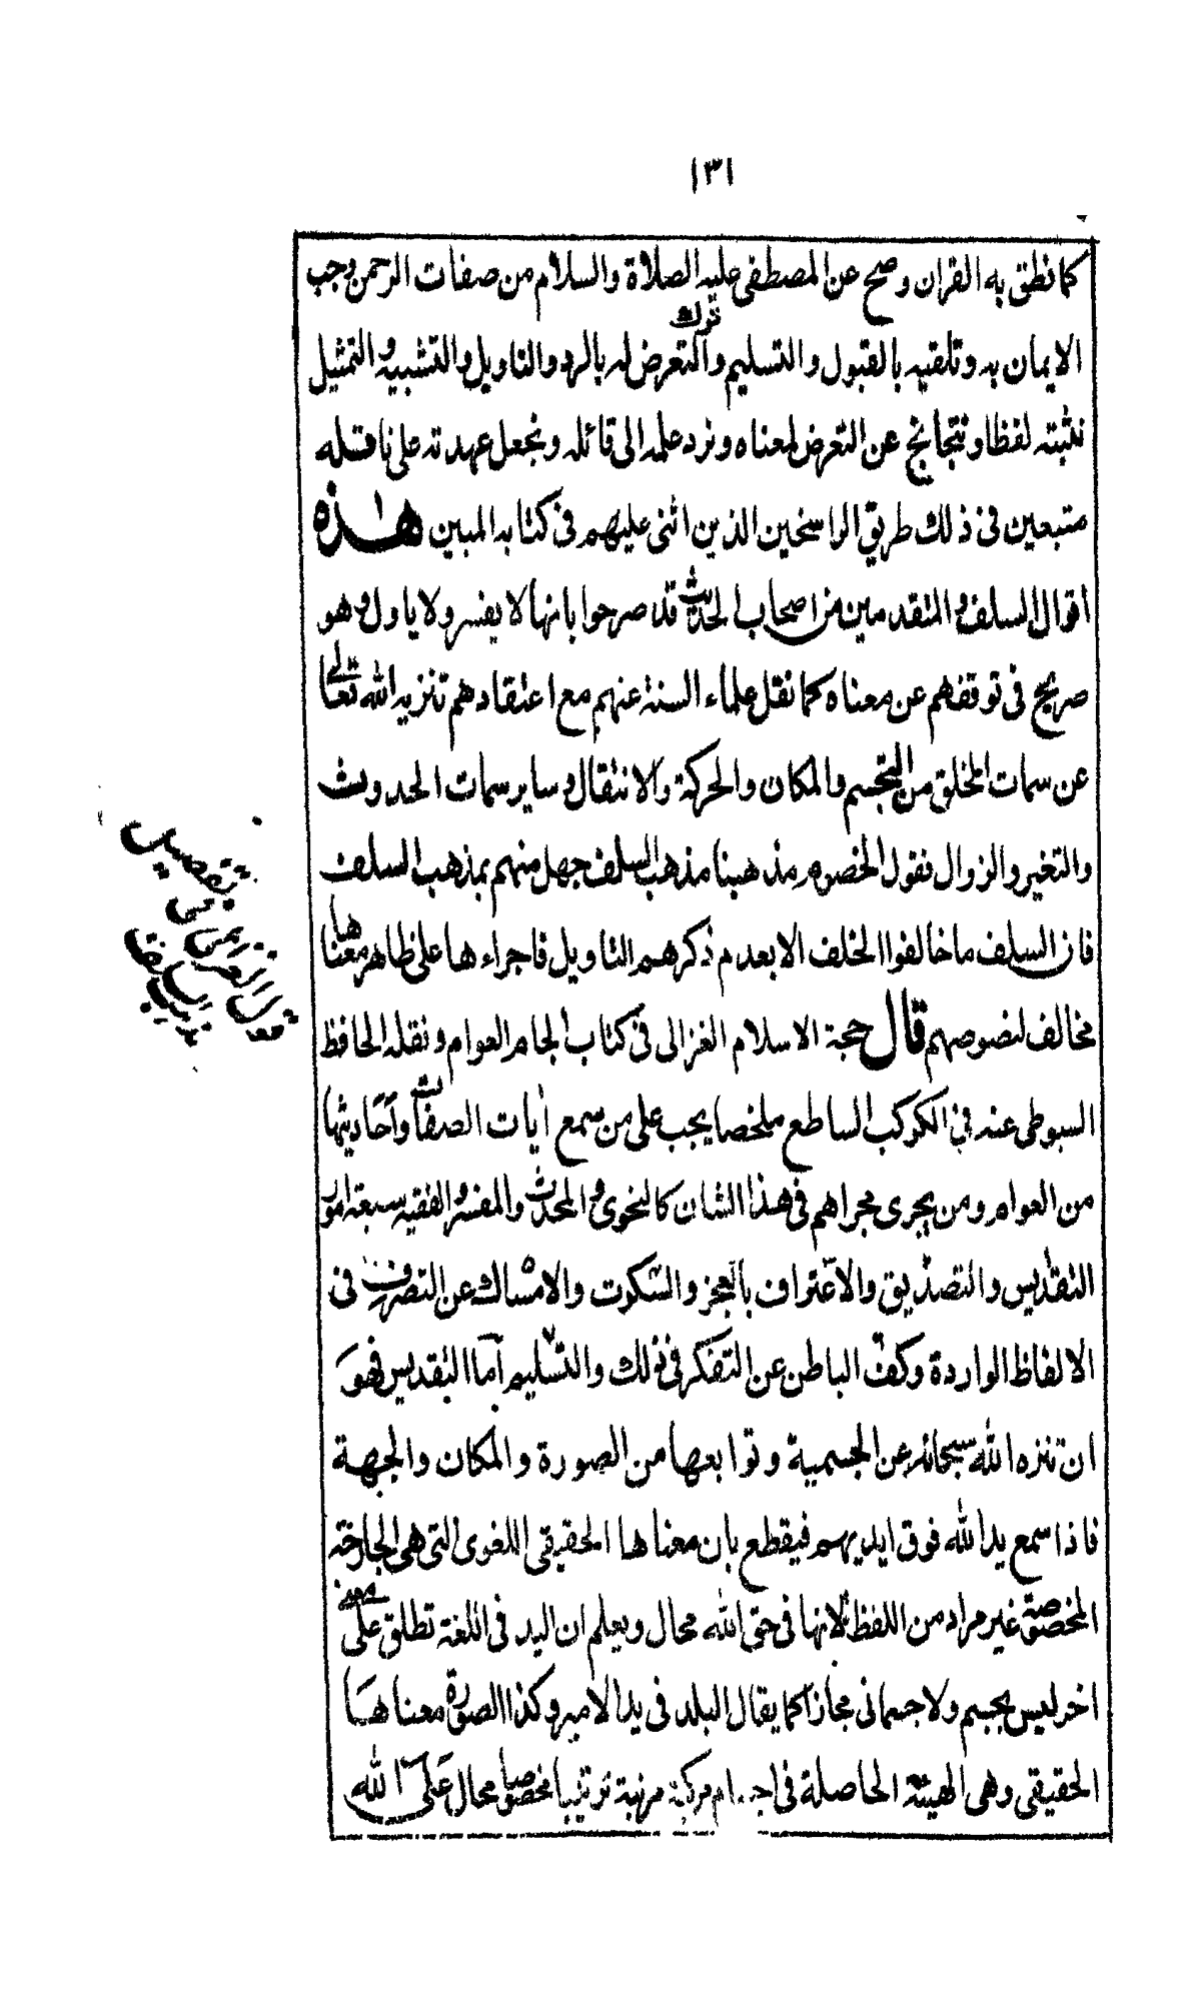 ١٣١
كما نطق به القران وصح عن المصطفى عليه الصلاة والسلام من صفات الرحمن وجب
ترك
الايمان به وتلقيه بالقبول والتسليم والتعرض له بالرد والتاويل والتشبيه والتمثيل
نثبته لفظا و عن التعرض لمعناه ونرد علمه الى قائله ونجعل عهدته على ناقله
متبعين فى ذلك طريق الراسخين الذين اثنى عليهم فى كتابه المبين هذه
اقوال السلف والمتقدمين من اصحاب الحديث قد صرحوا بانها لا يفسر ولا ياول وهو
صريح فى توقفهم عن معناه كما نقل علماء السنة عنهم مع اعتقادهم تنزيه الله تعالى
عن سمات الخلق من التجسم والمكان والحركة والانتقال وساير سمات الحدوث
والتغير والزوال فقول الخصوم مذهبنا مذهب السلف جهل منهم بمذهب السلف
فان السلف ما خالفوا الخلف الا بعدم ذكرهم التاويل فاجراءها على ظاهر معناها
مخالف لنصوصهم قال حجة الاسلام الغزالى فى كتاب الجام العوام ونقله الحافظ
السيوطى عنه فى الكوكب الساطع ملخصا يجب على من سمع ايات الصفات واحاديثها
من العوام ومن يجرى مجراهم فى هذا الشان كالنحوى والمحدث والمفسر والفقيه سبعة امور
التقديس والتصديق والاعتراف بالعجز والسكوت والامساك عن التصرف فى
الالفاظ الواردة وكف الباطن عن التفكر فى ذلك والتسليم اما التقديس فهو
ان تنزه الله سبحانه عن الجسمية وتوابعها من الصورة والمكان والجهة
فاذا سمع يد الله فوق ايديهم فيقطع بان معناها الحقيقى اللغوى التى هى الجارحة
المخصصة غير مراد من اللفظ لانها فى حق الله محال ويعلم ان اليد فى اللغة تطلق على معنى
اخر ليس بجسم ولا جسمانى مجازا كما يقال البلد فى يد الامير وكذا الصورة معناها
الحقيقى وهى الهيئة الحاصلة فى اجسام مركبة مرتبة ترتيبا مخصوصا محال على الله
قول الغزالى فى تفصيل
مذهب السلف